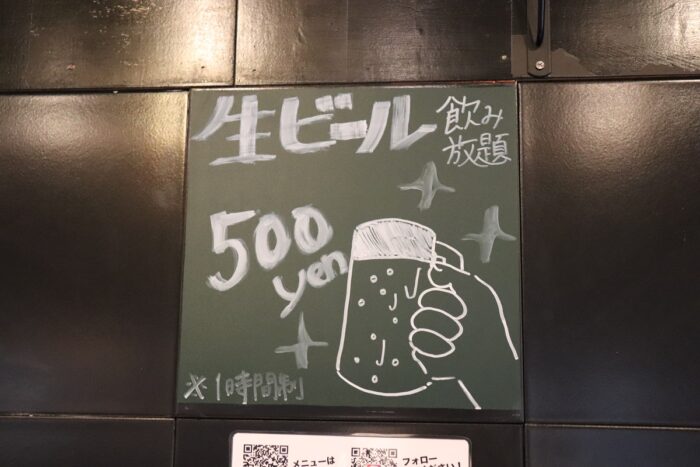 生ビール
飲み
放題
500
yen
※1時間制
メニューは
フォロー